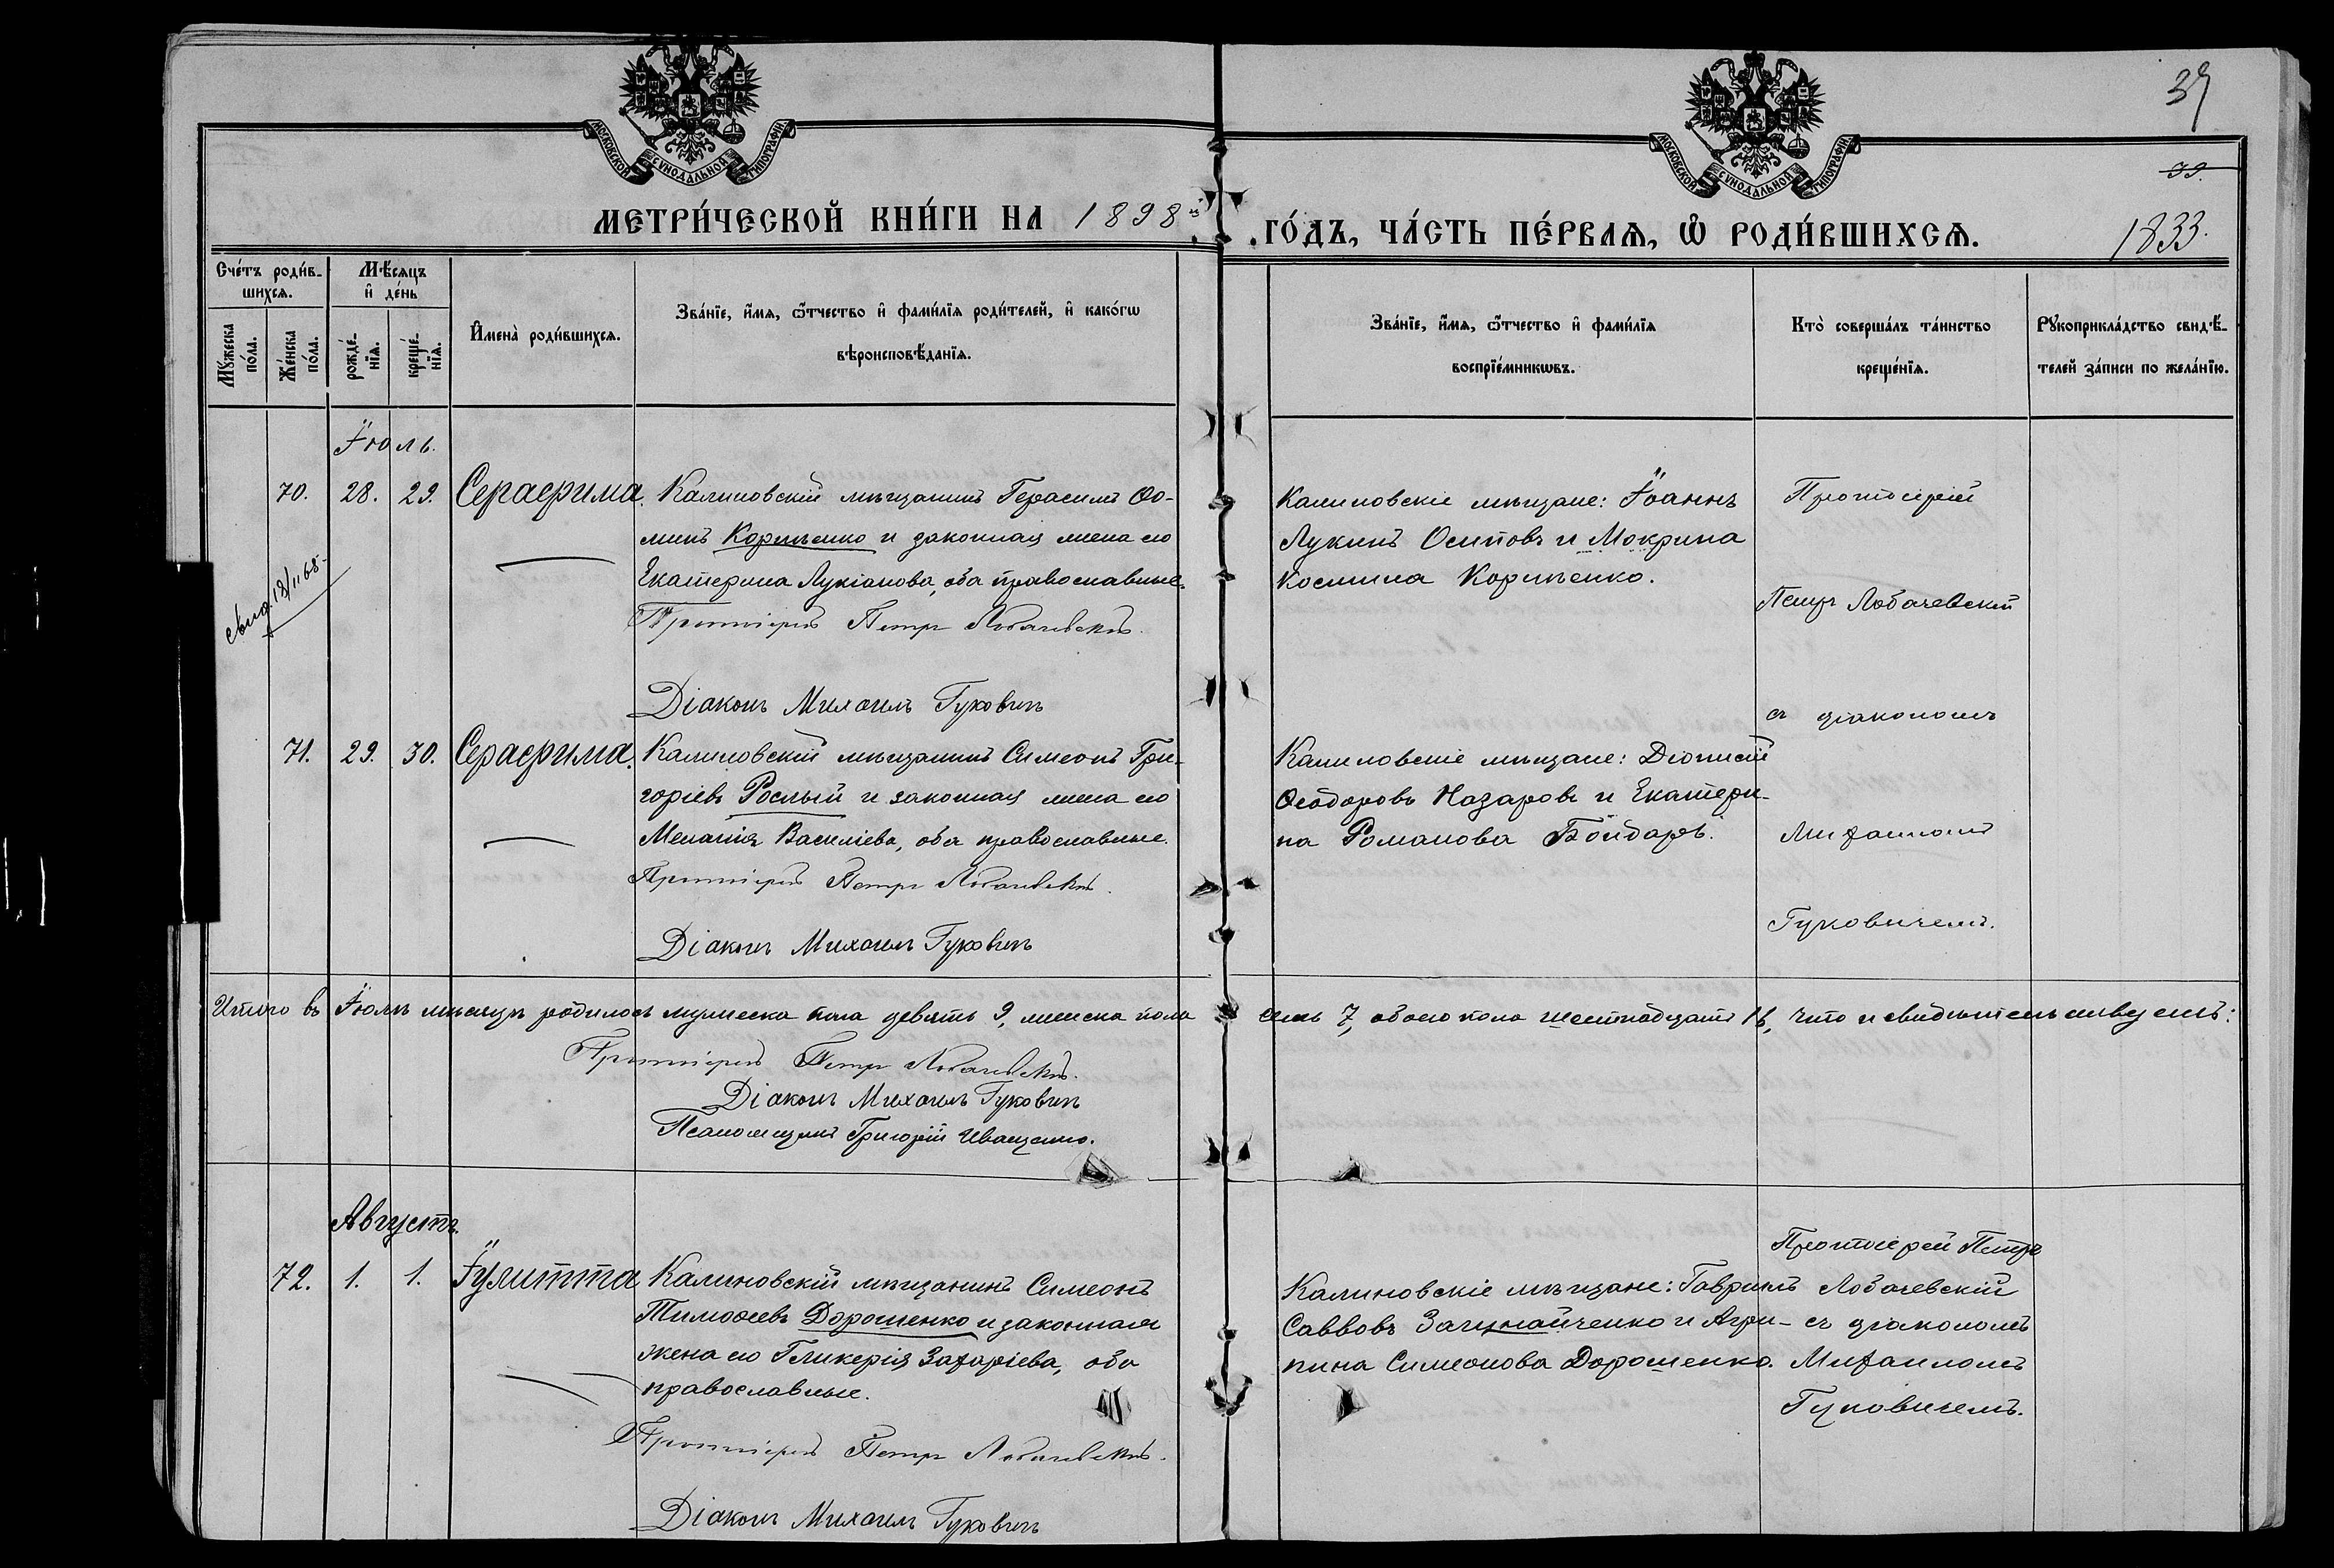 МОСКОВСКОЙ СѴНОДАЛЬНОЙ ТИПОГРАФІИ
МОСКОВСКОЙ СѴНОДАЛЬНОЙ ТИПОГРАФІИ
39
39.
МЕТРИ́ЧЕСКОЙ КНИ́ГИ НА 1898й
ГО́ДЪ, ЧА́СТЬ ПЕ́РВАѦ, Ѡ РОДИ́ВШИХСѦ.
1833.
Сче́тъ роди́в-
шихсѧ.
Мꙋ́жеска по́ла.
Же́нска по́ла.
Мѣ́сѧцъ
и҆ де́нь
рожде́-
нїѧ.
креще́-
нїѧ.
И҆мена̀ роди́вшихсѧ.
Зва́нїе, и҆́мѧ, ѻ҆́тчество и҆ фами́лїѧ роди́телей, и҆ како́гѡ
вѣроисповѣ́данїѧ.
Зва́нїе, и҆́мѧ, ѻ҆́тчество и҆ фами́лїѧ
воспрїе́мникѡвъ.
Кто̀ соверша́лъ та́инство
креще́нїѧ.
Рꙋкоприкла́дство свидѣ́-
телей за́писи по жела́нїю.
Іюль.
70. 28. 29. Серафима. Калиновскій мѣщанинъ Герасимъ Ѳо-
минъ Корниенко и законная жена его
Екатерина Лукіанова, оба православные.
Протоіерей Петръ Лобачевскій.
Діаконъ Михаилъ Гуковичъ
Калиновскіе мѣщане: Іоаннъ
Лукинъ Осиповъ и Мокрина
Космина Корниенко.
Протоіерей
Петръ Лобачевскій
съ діакономъ
Михаиломъ
Гуковичемъ.
71. 29. 30. Серафима. Калиновскій мѣщанинъ Симеонъ Гри-
горіевъ Рослый и законная жена его
Меланія Василіева, оба православные.
Протоіерей Петръ Лобачевскій.
Діаконъ Михаилъ Гуковичъ
Калиновскіе мѣщане: Діонисій
Ѳеодоровъ Назаровъ и Екатери-
на Романова Бондарь.
Итого въ Іюлѣ мѣсяцѣ родилось мужеска пола девять 9, женска пола семь 7, обоего пола шестнадцать 16, что и свидѣтельствуемъ:
Протоіерей Петръ Лобачевскій.
Діаконъ Михаилъ Гуковичъ
Псаломщикъ Григорій Иващенко.
Августъ.
72. 1. 1. Іулитта Калиновскій мѣщанинъ Симеонъ
Тимоѳеевъ Дорошенко и законная
жена его Гликерія Захаріева, оба
православные.
Протоіерей Петръ Лобачевскій.
Діаконъ Михаилъ Гуковичъ
Калиновскіе мѣщане: Гавриилъ
Саввовъ и Агри-
пина Симеонова Дорошенко.
Протоіерей Петръ
Лобачевскій
съ діакономъ
Михаиломъ
Гуковичемъ.